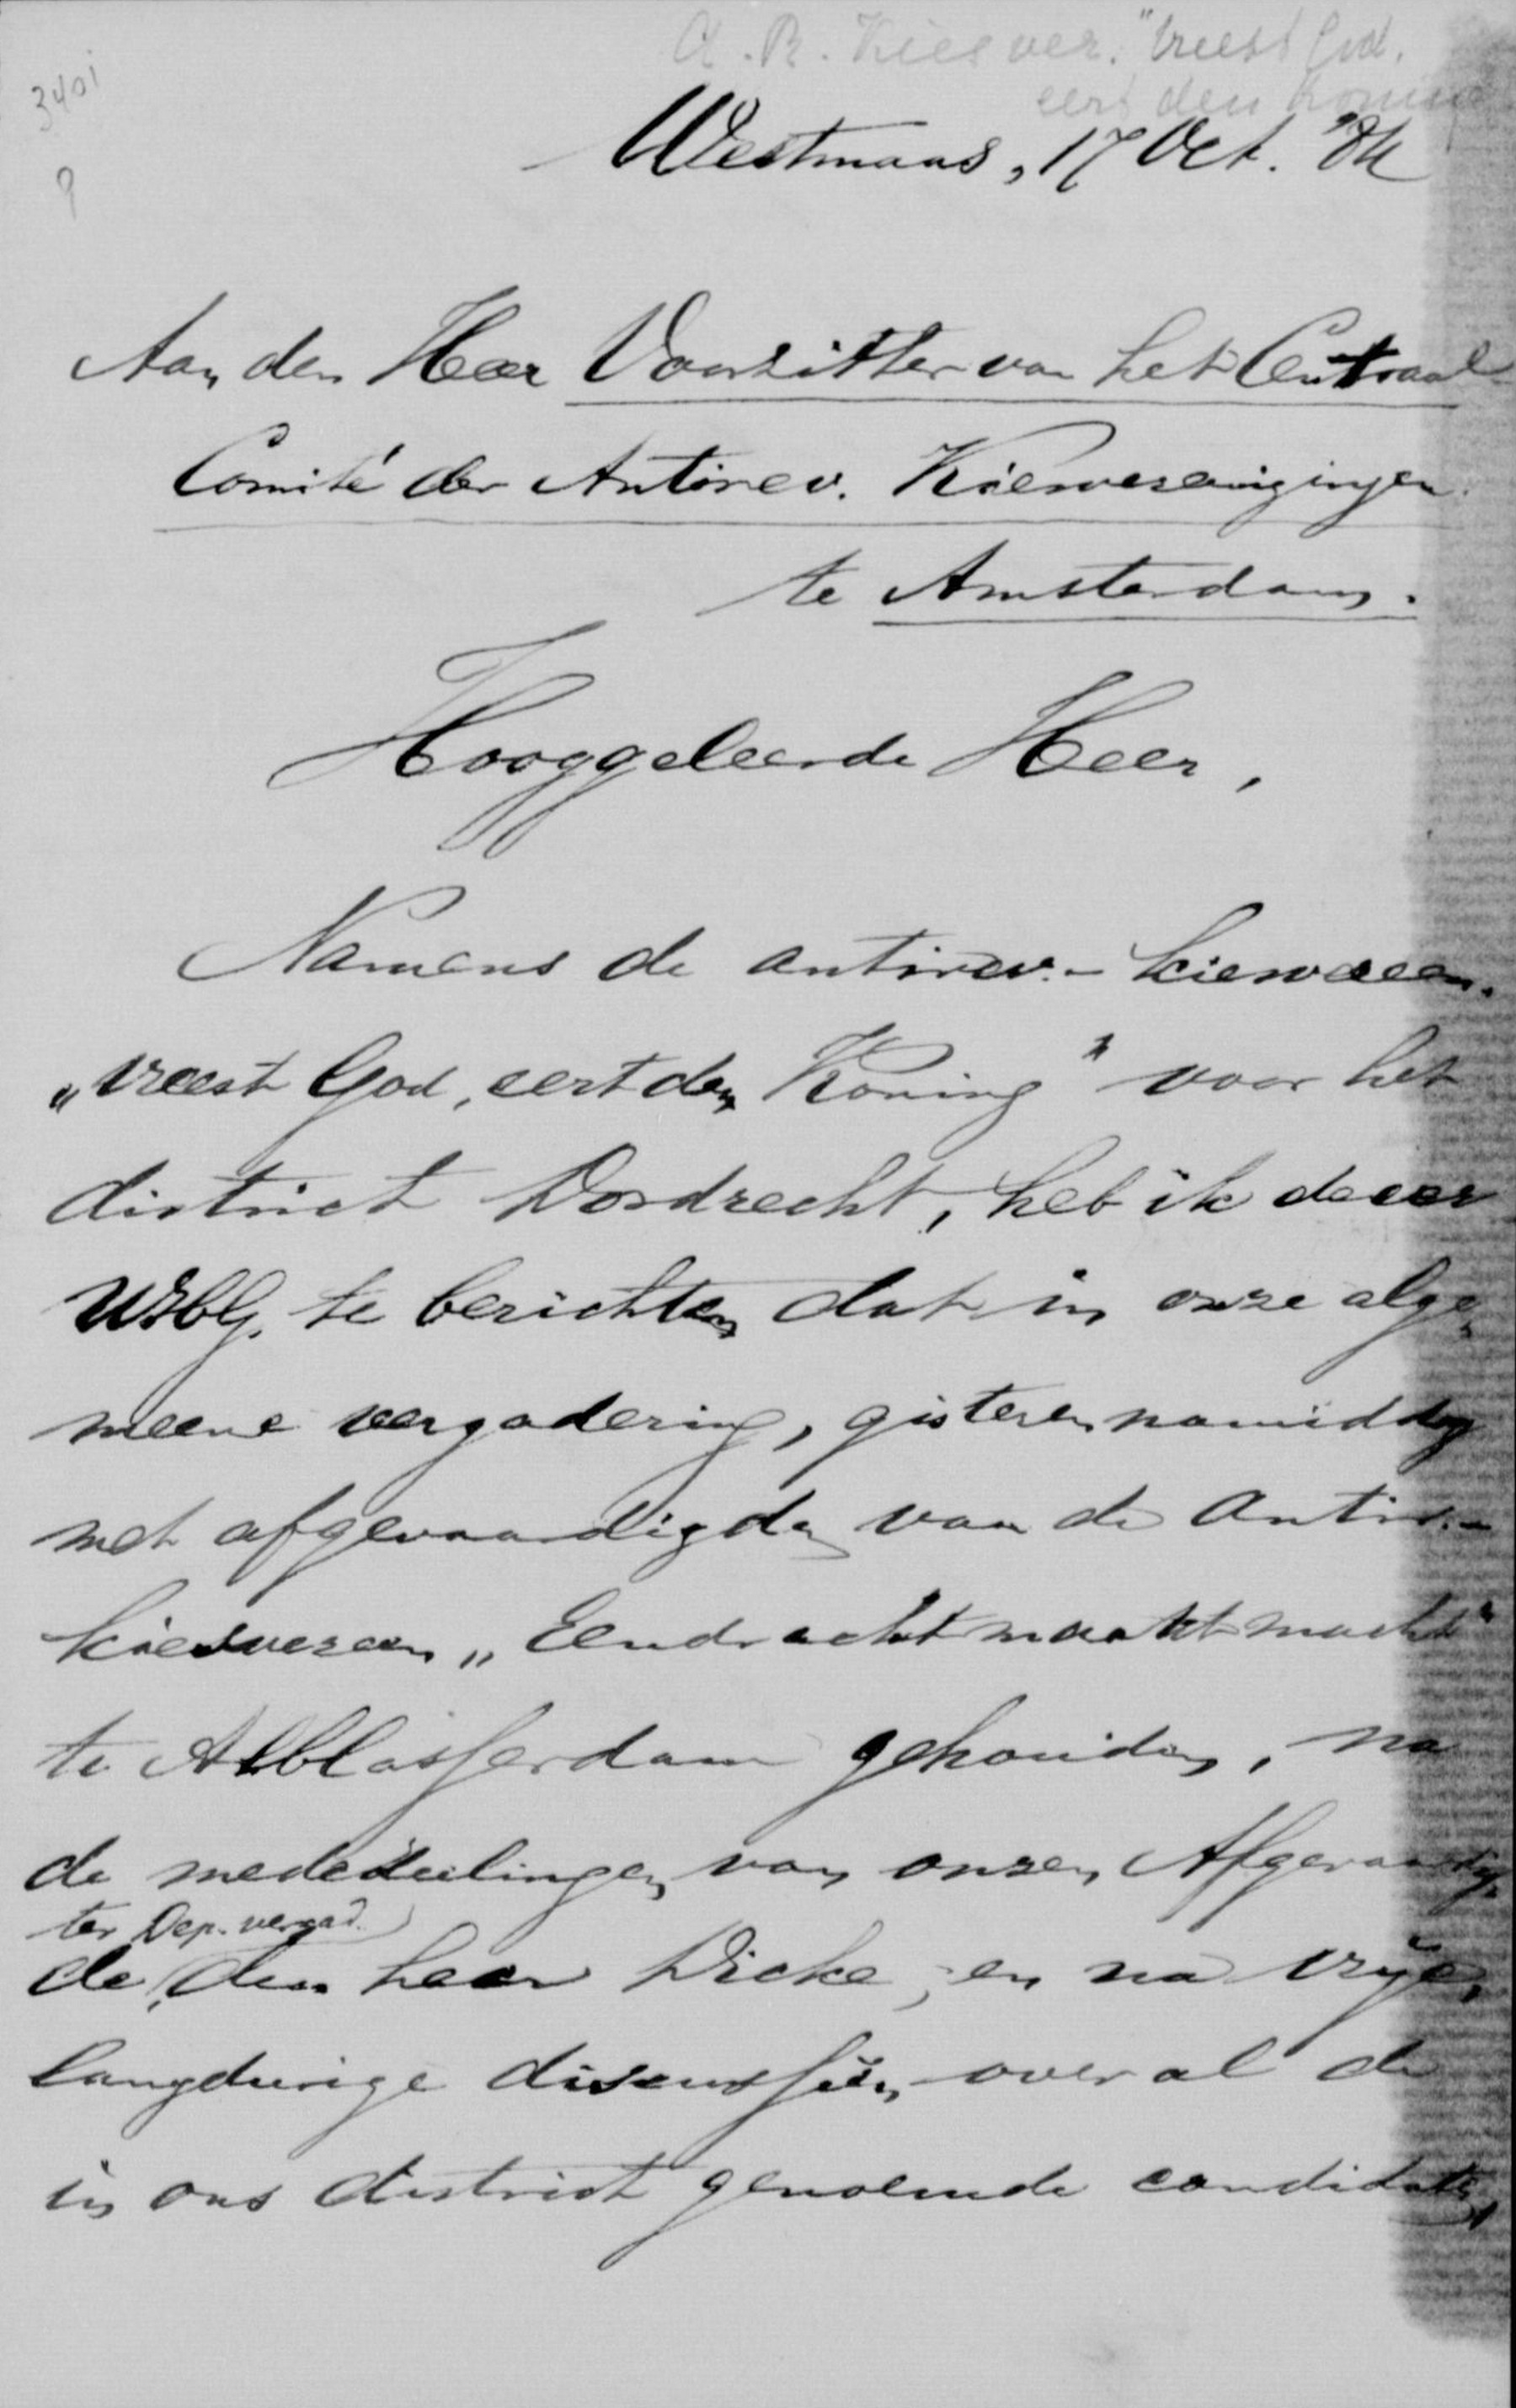 A.R. Kiesver. "Vreest God.
eert den Koning
3401
9
Westmaas, 17 Oct. '84
Aan den Heer Voorzitter van het Centraal
Comité der Antirev. Kiesvereenigingen
te Amsterdam.
Hooggeleerde Heer,
Namens de antirev.- kiesvereen.
„Vreest God, eert den Koning" voor het
district Dordrecht, heb ik de eer
UEdG. te berichten dat in onze alge-
meene vergadering, gisteren namiddag
met afgevaardigden van de Antir.-
kiesvereen „Eendracht maakt macht"
te Alblasserdam gehouden, na
de mededeelingen van onzen Afgevaardig-
ter Dep. vergad.
de, den heer Dicke, en na vrije,
langdurige discussiën over al de
in ons district genoemde candidaten,